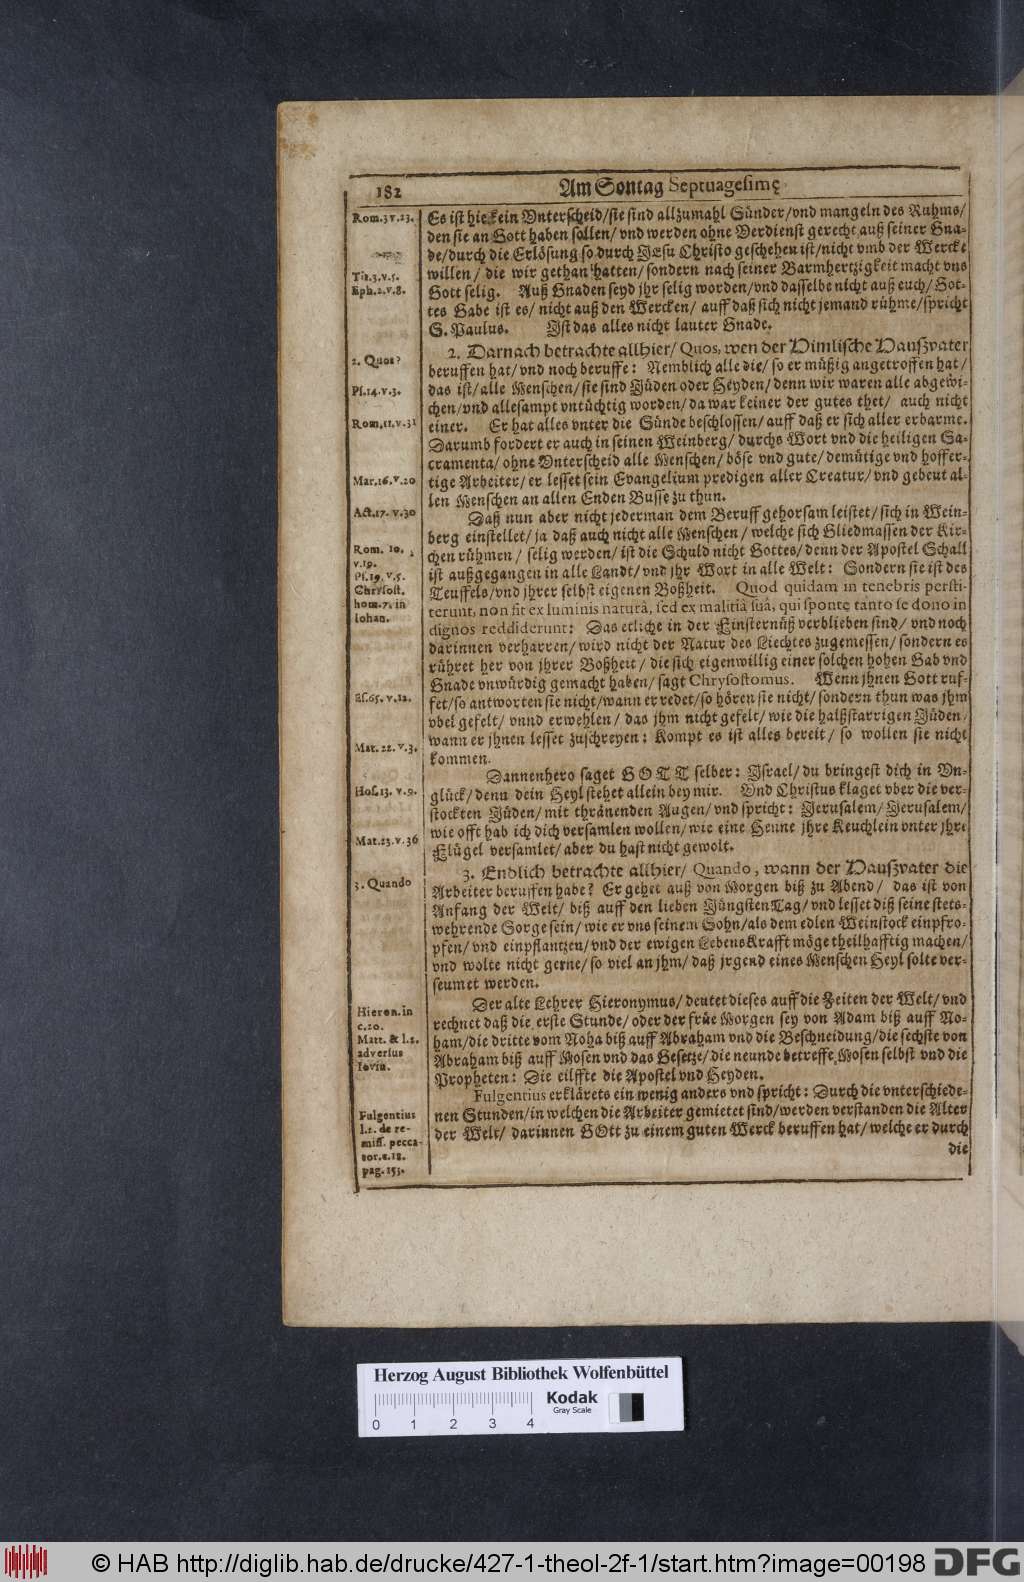 182
Am Sontag Septuagesimę.
Rom.3 v.23.
Tit.3.v.5.
Eph.2.v.8.
Es ist hie kein Vnterscheid/sie sind allzumahl Sünder/vnd mangeln des Ruhms/
den sie an Gott haben sollen/vnd werden ohne Verdienst gerecht auß seiner Gna-
de/durch die Erlösung so durch JEsu Christo geschehen ist/nicht vmb der Wercke
willen/ die wir gethan hatten/ sondern nach seiner Barmhertzigkeit macht vns
Gott selig. Auß Gnaden seyd jhr selig worden/vnd dasselbe nicht auß euch/ Got-
tes Gabe ist es/ nicht auß den Wercken/ auff daß sich nicht jemand rühme/spricht
S. Paulus. Ist das alles nicht lauter Gnade.
2. Quos?
Ps.14.v.3.
Rom.11.v.31
Mar.16.v.20
2. Darnach betrachte allhier/ Quos, wen der Himlische Hauszvater
beruffen hat/vnd noch beruffe: Nemblich alle die/ so er müßig angetroffen hat/
das ist/alle Menschen/ sie sind Jüden oder Heyden/ denn wir waren alle abgewi-
chen/vnd allesampt vntüchtig worden/ da war keiner der gutes thet/ auch nicht
einer. Er hat alles vnter die Sünde beschlossen/ auff daß er sich aller erbarme.
Darumb fordert er auch in seinen Weinberg/ durchs Wort vnd die heiligen Sa-
cramenta/ ohne Vnterscheid alle Menschen/ böse vnd gute/ demütige vnd hoffer-
tige Arbeiter/ er lesset sein Evangelium predigen aller Creatur/ vnd gebeut al-
len Menschen an allen Enden Busse zu thun.
Act.17. v.30
Rom. 10.
v.19.
Ps.19.v.5.
Chrysost.
hom.7. in
Iohan.
Es.65.v.12.
Mat. 22. v.3.
Daß nun aber nicht jederman dem Beruff gehorsam leistet/ sich in Wein-
berg einstellet/ ja daß auch nicht alle Menschen/ welche sich Gliedmassen der Kir-
chen rühmen/ selig werden/ ist die Schuld nicht Gottes/ denn der Apostel Schall
ist außgegangen in alle Landt/ vnd jhr Wort in alle Welt: Sondern sie ist des
Teuffels/vnd jhrer selbst eigenen Boßheit. Quod quidam in tenebris persti-
terunt, non fit ex luminis naturâ, sed ex malitiâ suâ, qui spontę tanto se dono in
dignos reddiderunt: Das etliche in der Finsternüß verblieben sind/ vnd noch
darinnen verharren/ wird nicht der Natur des Liechtes zugemessen/ sondern es
rühret her von jhrer Boßheit/ die sich eigenwillig einer solchen hohen Gab vnd
Gnade vnwürdig gemacht haben/ sagt Chrysostomus. Wenn jhnen Gott ruf-
fet/so antworten sie nicht/wann er redet/so hören sie nicht/ sondern thun was jhm
vbel gefelt/ vnnd erwehlen/ das jhm nicht gefelt/ wie die halßstarrigen Jüden/
wann er jhnen lesset zuschreyen: Kompt es ist alles bereit/ so wollen sie nicht
kommen.
Hos.13. v.9.
Mat.23.v.36
Dannenhero saget GOTT selber: Israel/ du bringest dich in Vn-
glück/ denn dein Heyl stehet allein bey mir. Vnd Christus klaget vber die ver-
stockten Jüden/ mit thränenden Augen/ vnd spricht: Jerusalem/ Jerusalem/
wie offt hab ich dich versamlen wollen/ wie eine Henne jhre Keuchlein vnter jhre
Flügel versamlet/ aber du hast nicht gewolt.
3. Quando
3. Endlich betrachte allhier/ Quando, wann der Hauszvater die
Arbeiter beruffen habe? Er gehet auß von Morgen biß zu Abend/ das ist von
Anfang der Welt/ biß auff den lieben Jüngsten Tag/ vnd lesset diß seine stets-
wehrende Sorge sein/ wie er vns seinem Sohn/als dem edlen Weinstock einpfro-
pfen/ vnd einpflantzen/vnd der ewigen Lebens Krafft möge theilhafftig machen/
vnd wolte nicht gerne/ so viel an jhm/ daß jrgend eines Menschen Heyl solte ver-
seumet werden.
Hieron. in
c.20.
Matt. & l.2.
adversus
Iovin.
Der alte Lehrer Hieronymus/ deutet dieses auff die Zeiten der Welt/ vnd
rechnet daß die erste Stunde/ oder der früe Morgen sey von Adam biß auff No-
ham/die dritte vom Noha biß auff Abraham vnd die Beschneidung/die sechste von
Abraham biß auff Mosen vnd das Gesetze/ die neunde betreffe Mosen selbst vnd die
Propheten: Die eilffte die Apostel vnd Heyden.
Fulgentius
l.1. de re-
miss. pecca-
tor.c.18.
pag.153.
Fulgentius erklärets ein wenig anders vnd spricht: Durch die vnterschiede-
nen Stunden/in welchen die Arbeiter gemietet sind/werden verstanden die Alter
der Welt/ darinnen GOtt zu einem guten Werck beruffen hat/ welche er durch
die
Herzog August Bibliothek Wolfenbüttel
0 1 2 3 4
Kodak
Gray Scale
© HAB http://diglib.hab.de/drucke/427-1-theol-2f-1/start.htm?image=00198
DFG